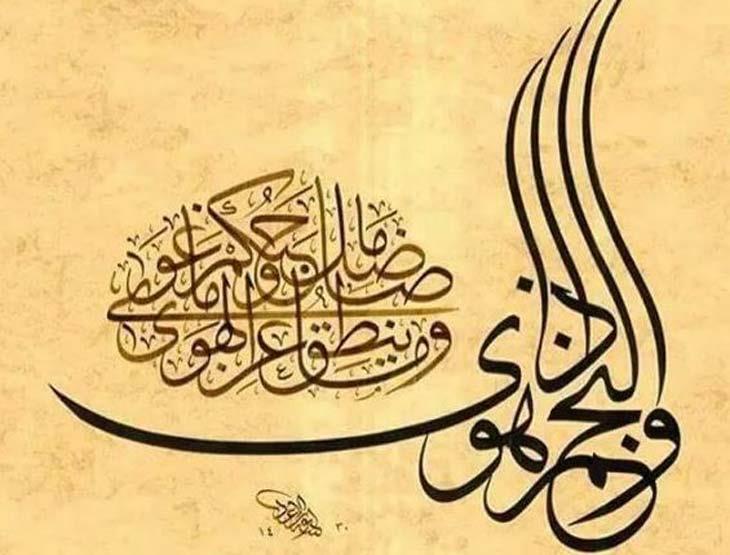 والنجم إذا هوى
ما ضل صاحبكم وما غوى
وما ينطق عن الهوى
١٤٣٠